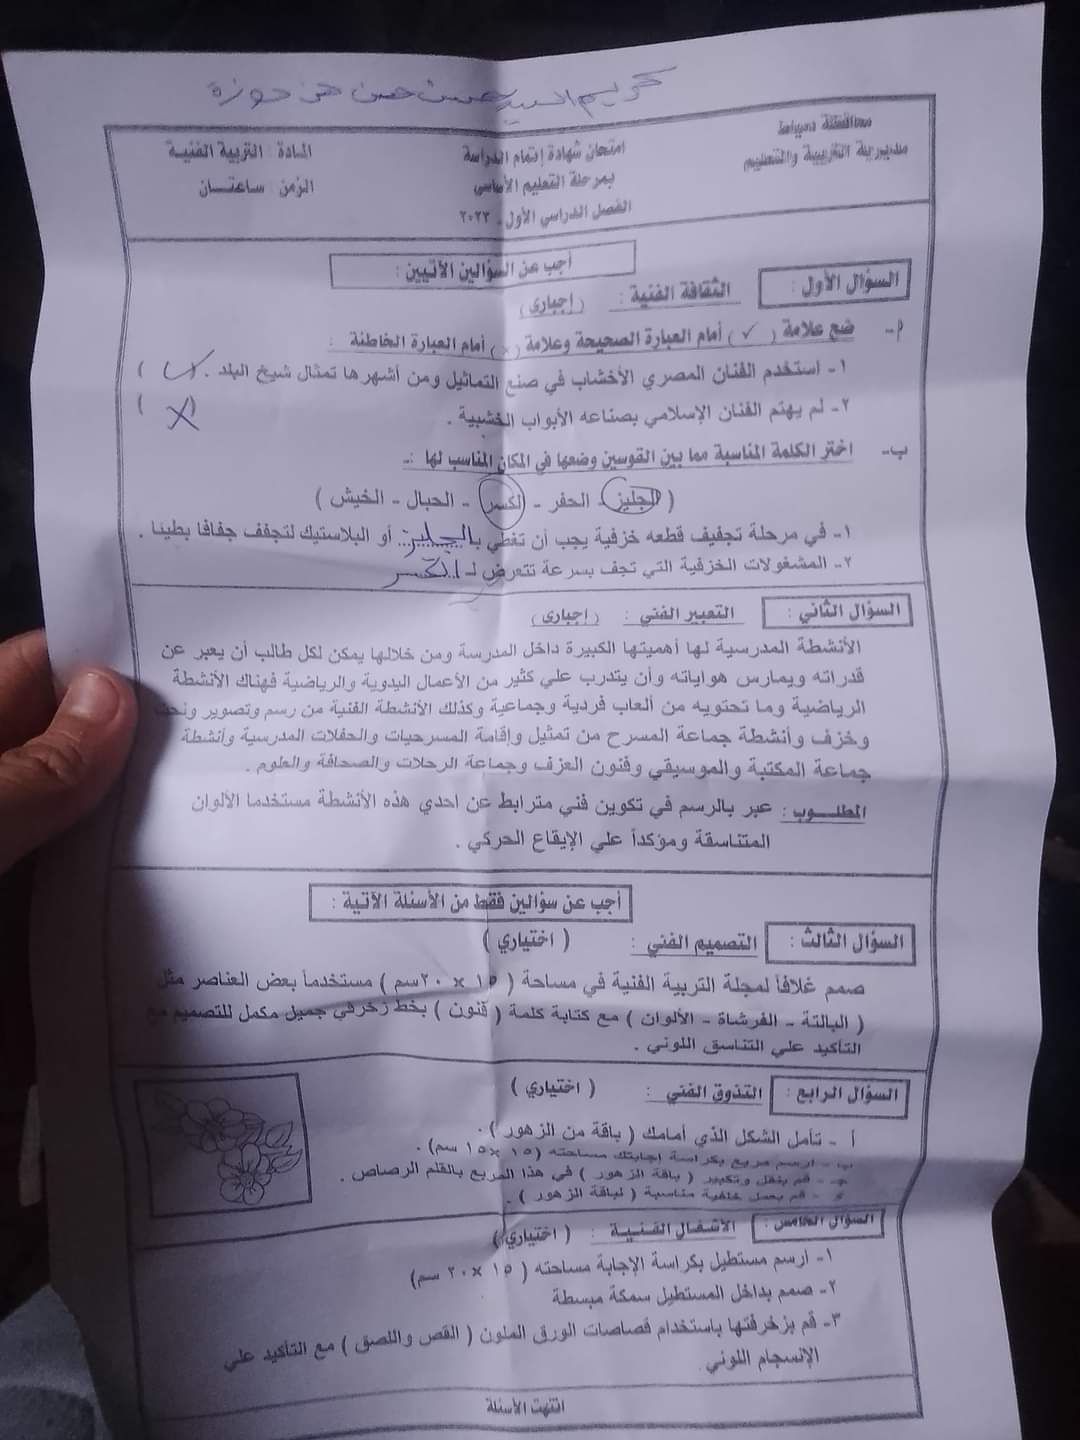 كريم السيد حسن حسن
محافظة دمياط
مديرية التربية والتعليم
امتحان شهادة إتمام الدراسة
بمرحلة التعليم الأساسي
الفصل الدراسي الأول - ٢٠٢٣
المادة : التربية الفنية
الزمن : ساعتــان
أجب عن السؤالين الآتيين :
السؤال الأول : الثقافة الفنية : ( إجبارى )
أ- ضع علامة ( ✓ ) أمام العبارة الصحيحة وعلامة ( × ) أمام العبارة الخاطئة :
١- استخدم الفنان المصري الأخشاب في صنع التماثيل ومن أشهرها تمثال شيخ البلد . ( ✓ )
٢- لم يهتم الفنان الإسلامي بصناعه الأبواب الخشبية . ( X )
ب- اختر الكلمة المناسبة مما بين القوسين وضعها في المكان المناسب لها :-
( الجليز - الحفر - الكسر - الحبال - الخيش )
١- في مرحلة تجفيف قطعه خزفية يجب أن تغطي بـ الجليز أو البلاستيك لتجفف جفافا بطيئا .
٢- المشغولات الخزفية التي تجف بسرعة تتعرض لـ الكسر
السؤال الثاني : التعبير الفني : ( إجبارى )
الأنشطة المدرسية لها أهميتها الكبيرة داخل المدرسة ومن خلالها يمكن لكل طالب أن يعبر عن
قدراته ويمارس هواياته وأن يتدرب علي كثير من الأعمال اليدوية والرياضية فهناك الأنشطة
الرياضية وما تحتويه من ألعاب فردية وجماعية وكذلك الأنشطة الفنية من رسم وتصوير ونحت
وخزف وأنشطة جماعة المسرح من تمثيل وإقامة المسرحيات والحفلات المدرسية وأنشطة
جماعة المكتبة والموسيقي وفنون العزف وجماعة الرحلات والصحافة والعلوم .
المطلــوب : عبر بالرسم في تكوين فني مترابط عن احدي هذه الأنشطة مستخدما الألوان
المتناسقة ومؤكداً علي الإيقاع الحركي .
أجب عن سؤالين فقط من الأسئلة الآتية :
السؤال الثالث : التصميم الفني : ( اختياري )
صمم غلافاً لمجلة التربية الفنية في مساحة ( ١٥ × ٢٠سم ) مستخدماً بعض العناصر مثل
( البالتة - الفرشاة - الألوان ) مع كتابة كلمة ( فنون ) بخط زخرفي جميل مكمل للتصميم مع
التأكيد علي التناسق اللوني .
السؤال الرابع : التذوق الفني : ( اختياري )
أ - تأمل الشكل الذي أمامك ( باقة من الزهور ) .
ب - ارسم مربع بكراسة إجابتك مساحته (١٥ × ١٥ سم) .
جـ - قم بنقل وتكبير ( باقة الزهور ) في هذا المربع بالقلم الرصاص .
د - قم بعمل خلفية مناسبة ( لباقة الزهور ) .
السؤال الخامس : الأشغال الفنـيـة : ( اختياري )
١- ارسم مستطيل بكراسة الإجابة مساحته ( ١٥ × ٢٠ سم)
٢- صمم بداخل المستطيل سمكة مبسطة
٣- قم بزخرفتها باستخدام قصاصات الورق الملون ( القص واللصق ) مع التأكيد علي
الإنسجام اللوني .
انتهت الأسئلة